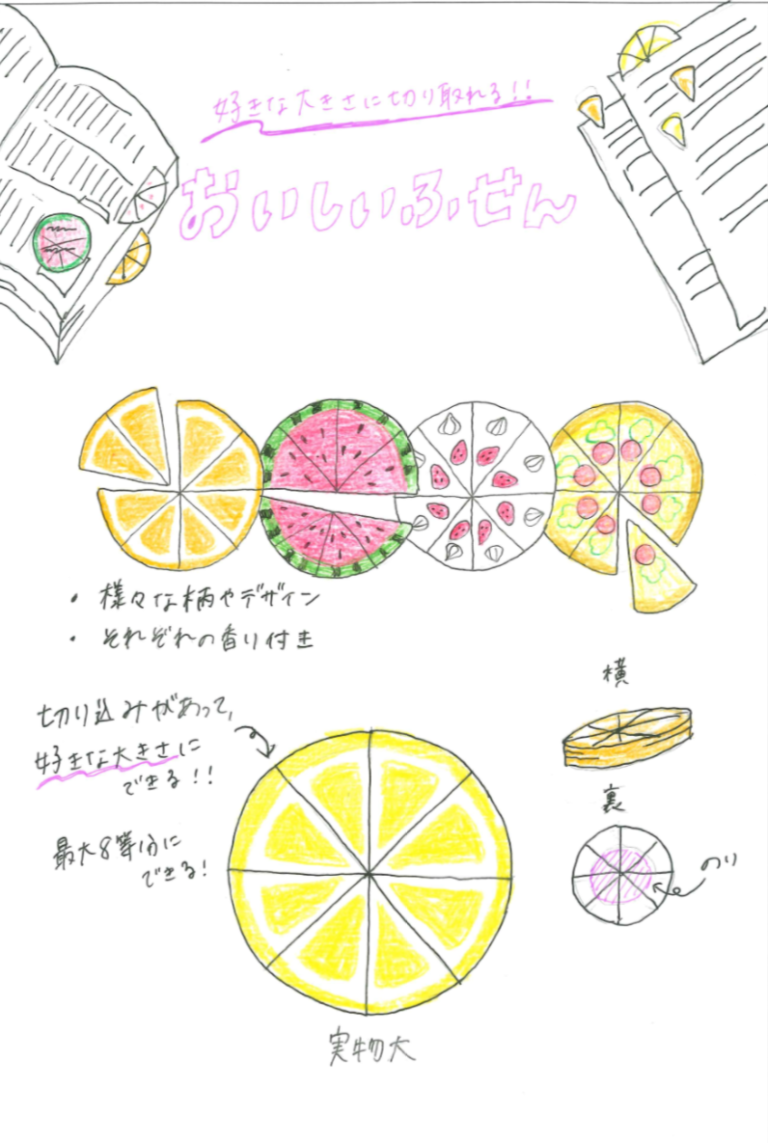 好きな大きさに切り取れる!!
おいしいふせん
・様々な柄やデザイン
・それぞれの香り付き
切り込みがあって、
好きな大きさに
できる!!
最大8等分に
できる!
実物大
横
裏
のり